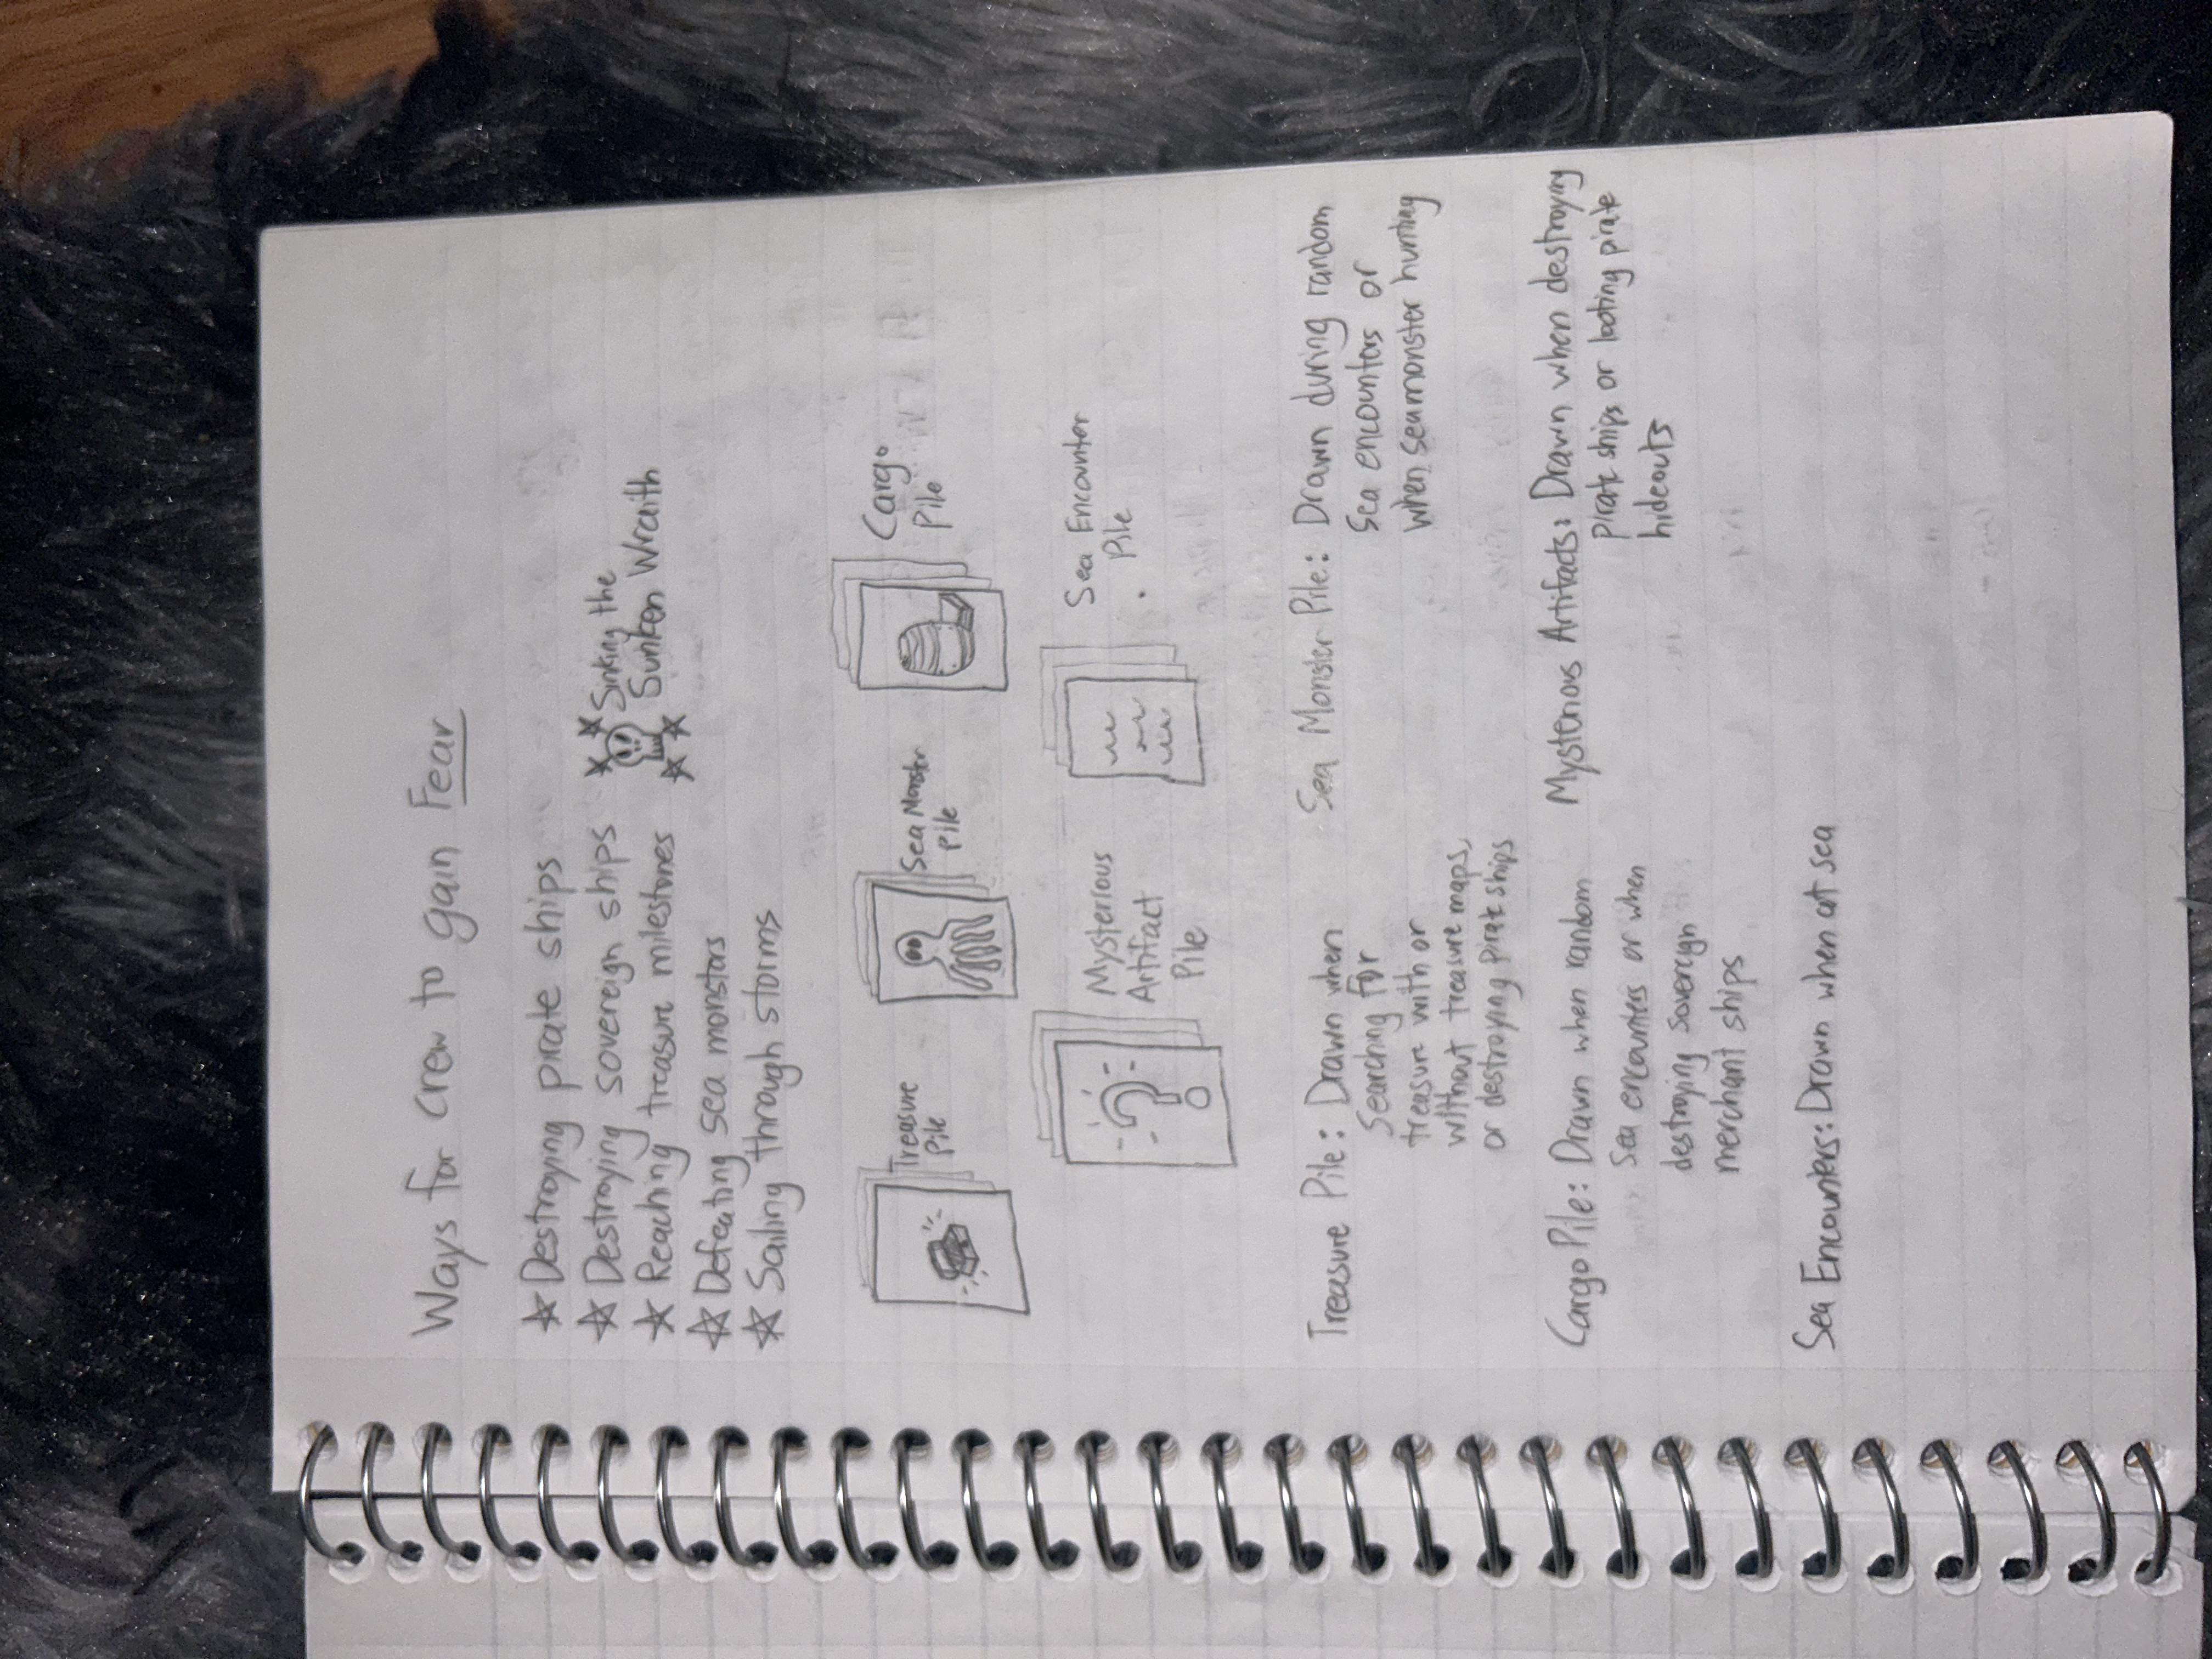 Ways for crew to gain Fear
☆ Destroying pirate ships
☆ Destroying sovereign ships
☆ Reaching treasure milestones
☆ Defeating sea monstors
☆ Sailing through storms
Sinking the
Sunken Wraith
Treasure
Pile
Sea Monster
Pile
Cargo
Pile
Mysterious
Artifact
Pile
Sea Encounter
Pile
Treasure Pile: Drawn when
searching for
treasure with or
without treasure maps,
or destroying pirate ships
Sea Monster Pile: Drawn during random
sea encounters or
when seamonster hunting
Cargo Pile: Drawn when random
sea encounters or when
destroying sovereign
merchant ships
Mysterious Artifacts: Drawn when destroying
pirate ships or looting pirate
hideouts
Sea Encounters: Drawn when at sea